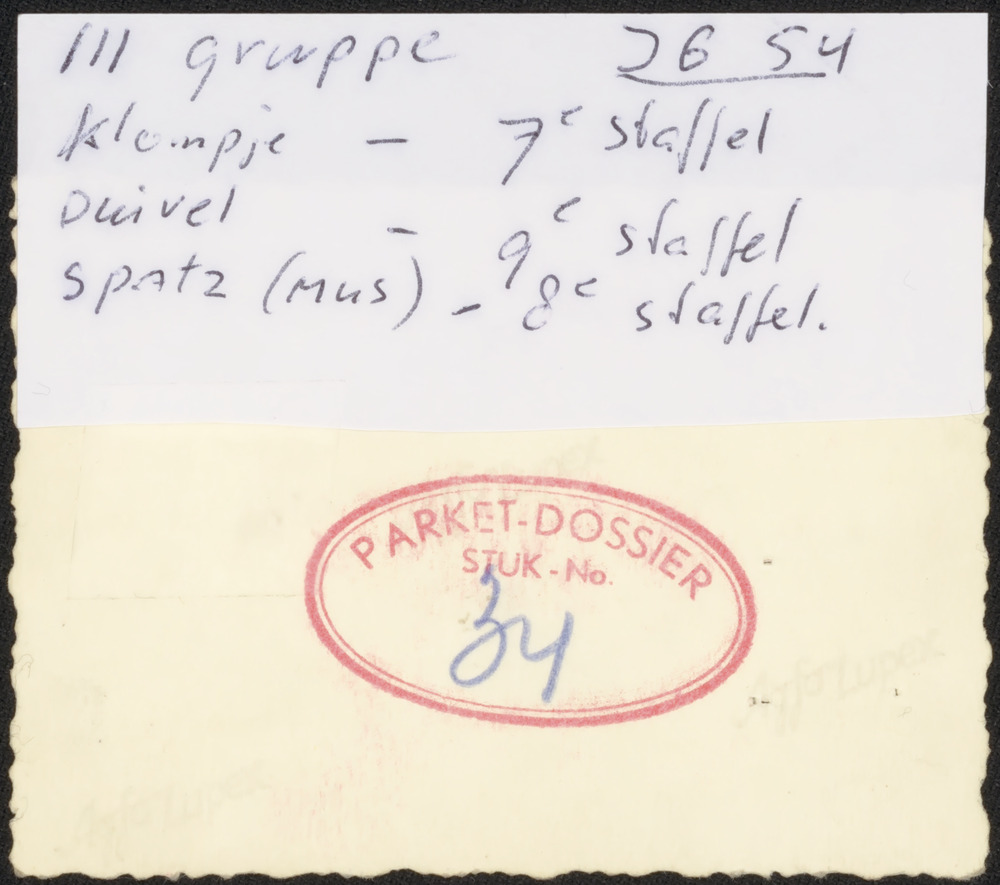 III gruppe 26 54
Klompje - 7e staffel
Duivel - 9e staffel
Spatz (Mus) - 8e staffel.
PARKET-DOSSIER
STUK-No.
34
Agfa Lupex
Agfa Lupex